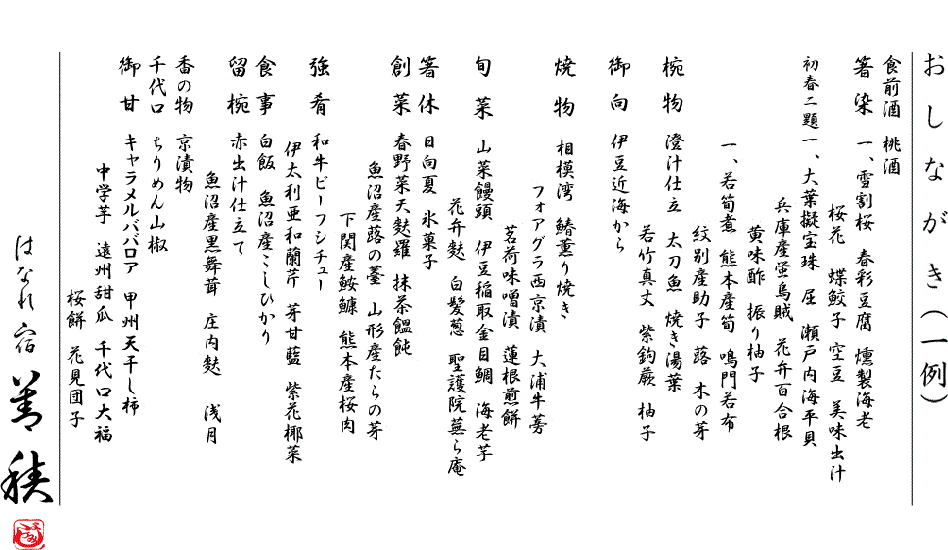 おしながき（一例）
食前酒 桃酒
箸染 一、雪割桜 春彩豆腐 燻製海老
桜花 蝶鮫子 空豆 美味出汁
初春二題 一、大葉擬宝珠 屈 瀬戸内海平貝
兵庫産蛍烏賊 花弁百合根
黄味酢 振り柚子
一、若筍煮 熊本産筍 鳴門若布
紋別産助子 蕗 木の芽
椀物 澄汁仕立 太刀魚 焼き湯葉
若竹真丈 紫鈎蕨 柚子
御向 伊豆近海から
焼物 相模湾 鰆薫り焼き
フォアグラ西京漬 大浦牛蒡
茗荷味噌漬 蓮根煎餅
旬菜 山菜饅頭 伊豆稲取金目鯛 海老芋
花弁麩 白髪葱 聖護院蕪ら庵
箸休 日向夏 氷菓子
創菜 春野菜天麩羅 抹茶饂飩
魚沼産蕗の薹 山形産たらの芽
下関産鮟鱇 熊本産桜肉
強肴 和牛ビーフシチュー
伊太利亜和蘭芹 芽甘藍 紫花椰菜
食事 白飯 魚沼産こしひかり
留椀 赤出汁仕立て
魚沼産黒舞茸 庄内麩 浅月
香の物 京漬物
千代口 ちりめん山椒
御甘 キャラメルババロア 甲州天干し柿
中学芋 遠州甜瓜 千代口大福
桜餅 花見団子
はなれ宿 善積